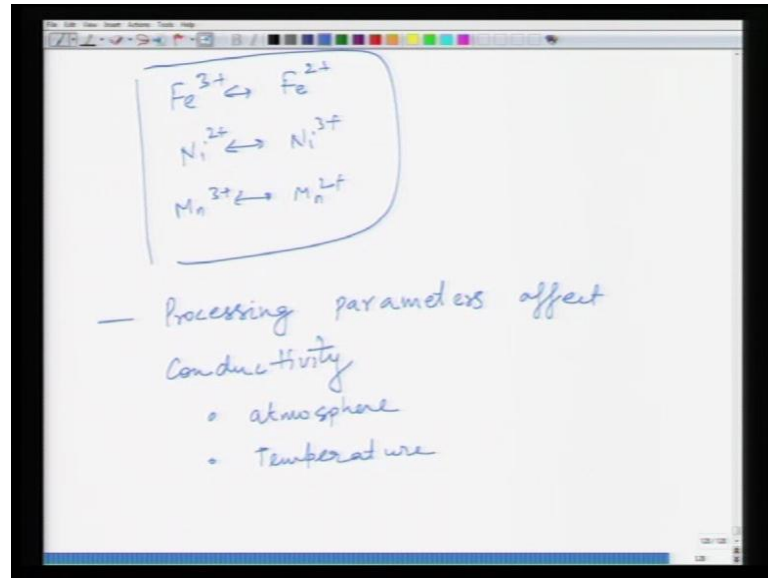 File Edit View Insert Actions Tools Help
Fe³⁺ ↔ Fe²⁺
Ni²⁺ ↔ Ni³⁺
Mn³⁺ ↔ Mn²⁺
— Processing parameters affect
Conductivity
• atmosphere
• Temperature